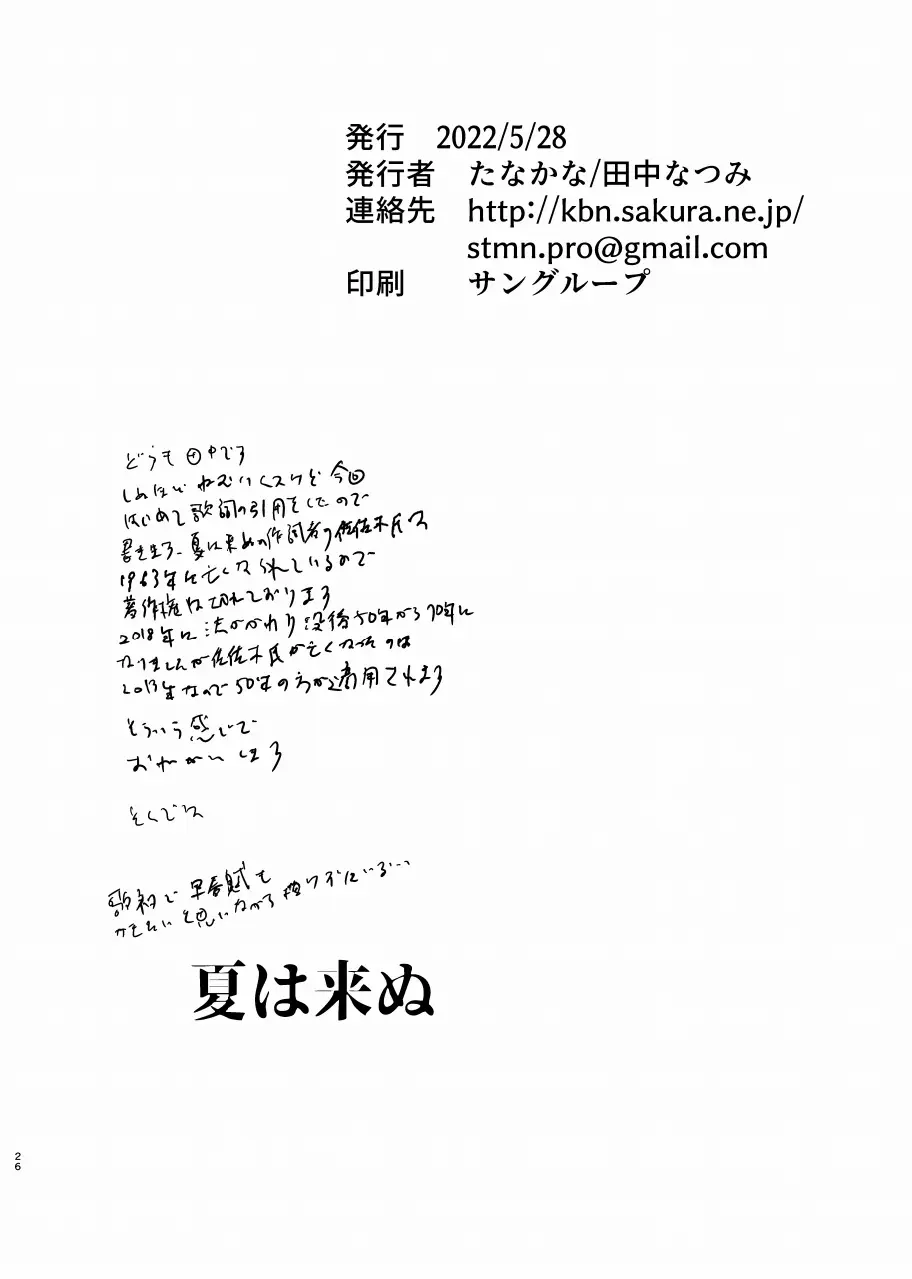 発行 2022/5/28
発行者 たなかな/田中なつみ
連絡先 http://kbn.sakura.ne.jp/
stmn.pro@gmail.com
印刷 サングループ
どうも田中です
しぬほどねむいくスけど今回
はじめて歌詞の引用をしたので
書きます、夏は来ぬの作詞者の佐佐木氏は
1963年に亡くなられているので
著作権は切れております
2018年に法がかわり没後50年から70年に
なりましたが佐佐木氏が亡くなったのは
2013年なので50年の方が適用されます
そういう感じで
おねがいします
そくでは
歌詞で早春賦も
かきたいと思いながら描けずにいる…
夏は来ぬ
26